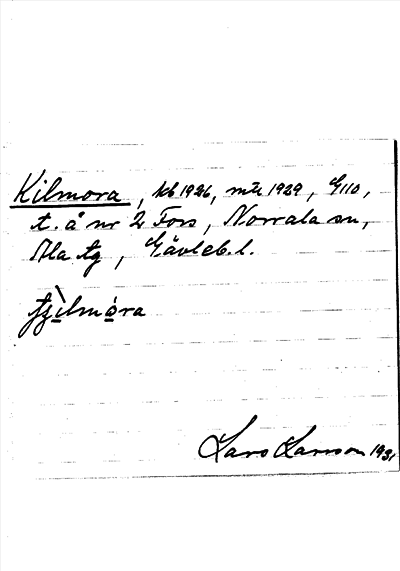 Kilmora, kb 1926, mtl 1929, G110,
t. å nr 2 Fors, Norrala sn,
Ala tg, Gävleb. l.
tjìlmóra
Lars Larsson 1931